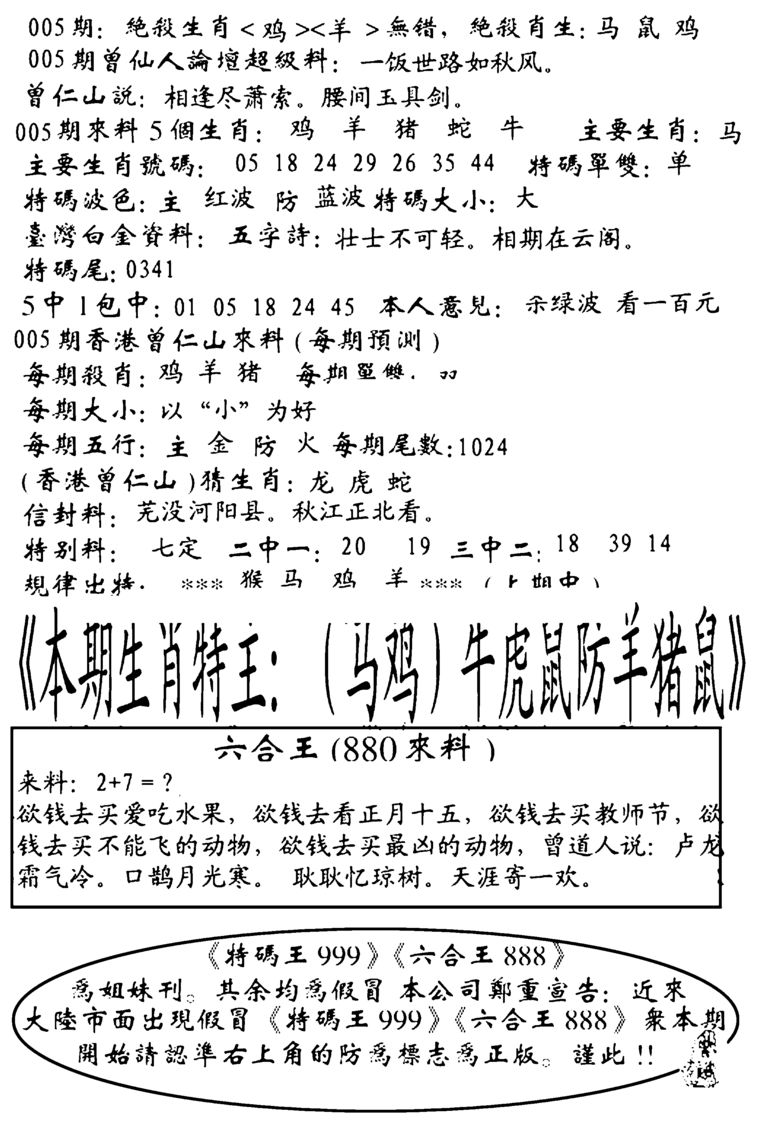 005期：絶殺生肖<鸡><羊>無错，絶殺肖生：马 鼠 鸡
005期曾仙人論壇超級料：一饭世路如秋风。
曾仁山説：相逢尽萧索。腰间玉具剑。
005期來料5個生肖：鸡 羊 猪 蛇 牛 主要生肖：马
主要生肖號碼：05 18 24 29 26 35 44 特碼單雙：单
特碼波色：主 红波 防 蓝波 特碼大小：大
臺灣白金資料：五字詩：壮士不可轻。相期在云阁。
特碼尾：0341
5中1包中：01 05 18 24 45 本人意見：杀绿波 看一百元
005期香港曾仁山來料(每期預测)
每期殺肖：鸡 羊 猪 每期單雙：
每期大小：以“小”为好
每期五行：主 金 防 火 每期尾數：1024
(香港曾仁山)猜生肖：龙 虎 蛇
信封料：芜没河阳县。秋江正北看。
特别料：七定 二中一：20 19 三中二：18 39 14
規律出特： *** 猴 马 鸡 羊 *** (上期中)
《本期生肖特王：（马鸡）牛虎鼠防羊猪鼠》
六合王(880來料)
来料：2+7=?
欲钱去买爱吃水果，欲钱去看正月十五，欲钱去买教师节，欲
钱去买不能飞的动物，欲钱去买最凶的动物，曾道人说：卢龙
霜气冷。口鹊月光寒。 耿耿忆琼树。天涯寄一欢。
《特碼王999》《六合王888》
爲姐妹刊。其余均爲假冒 本公司鄭重宣告：近來
大陸市面出現假冒《特碼王999》《六合王888》衆本期
開始請認準右上角的防爲標志爲正版。謹此!!